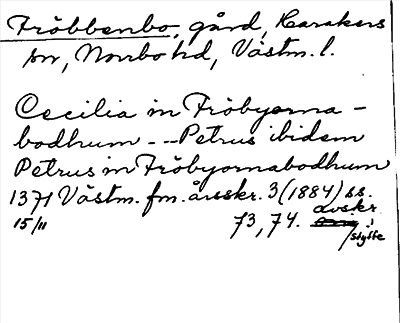 Fröbbenbo, gård, Karakers
sn, Norrbo hd, Västm. l.
Cecilia in Fröbyorna-
bodhum - - - Petrus ibidem
Petrus in Fröbyornabodhum
1371 Västm. fm. årsskr. 3 (1884) ss.
15/11 73, 74. avskr. i
stylte